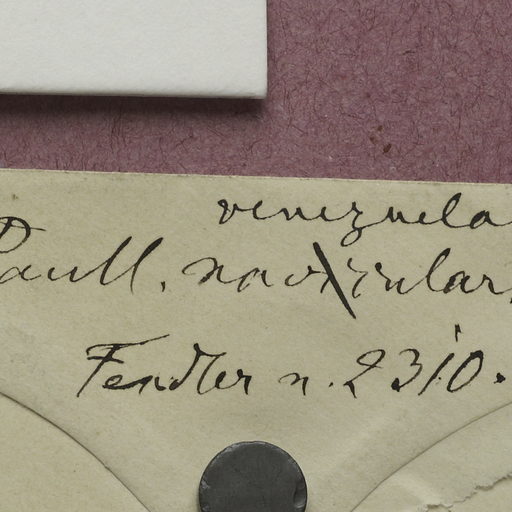 venezuela
Paull. navicular
Fendler n. 2310.